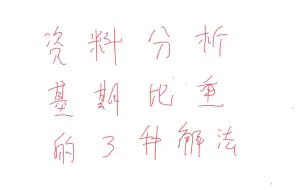 资料分析
基期比重
的3种解法